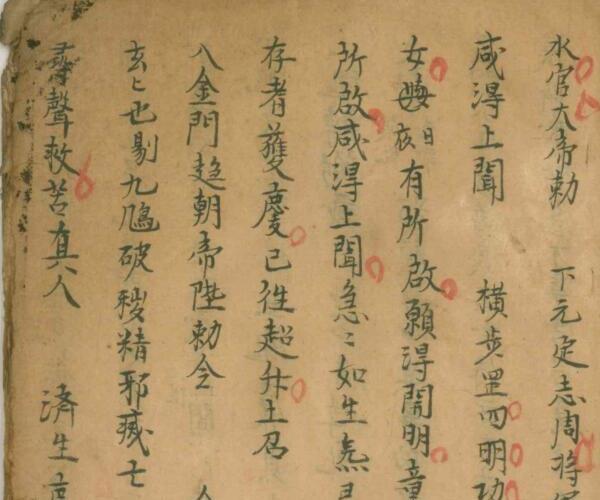 水官大帝勅 下元定志周将
咸淂上聞 橫步罡四明功
女 日夜有所啟願淂開明童
所啟咸淂上聞急〻如生炁
存者䕶慶已徃超升土君
入金門趋朝帝陛勅令
玄〻也剔九鳩破穢精邪滅亡
尋聲救苦真人 済生